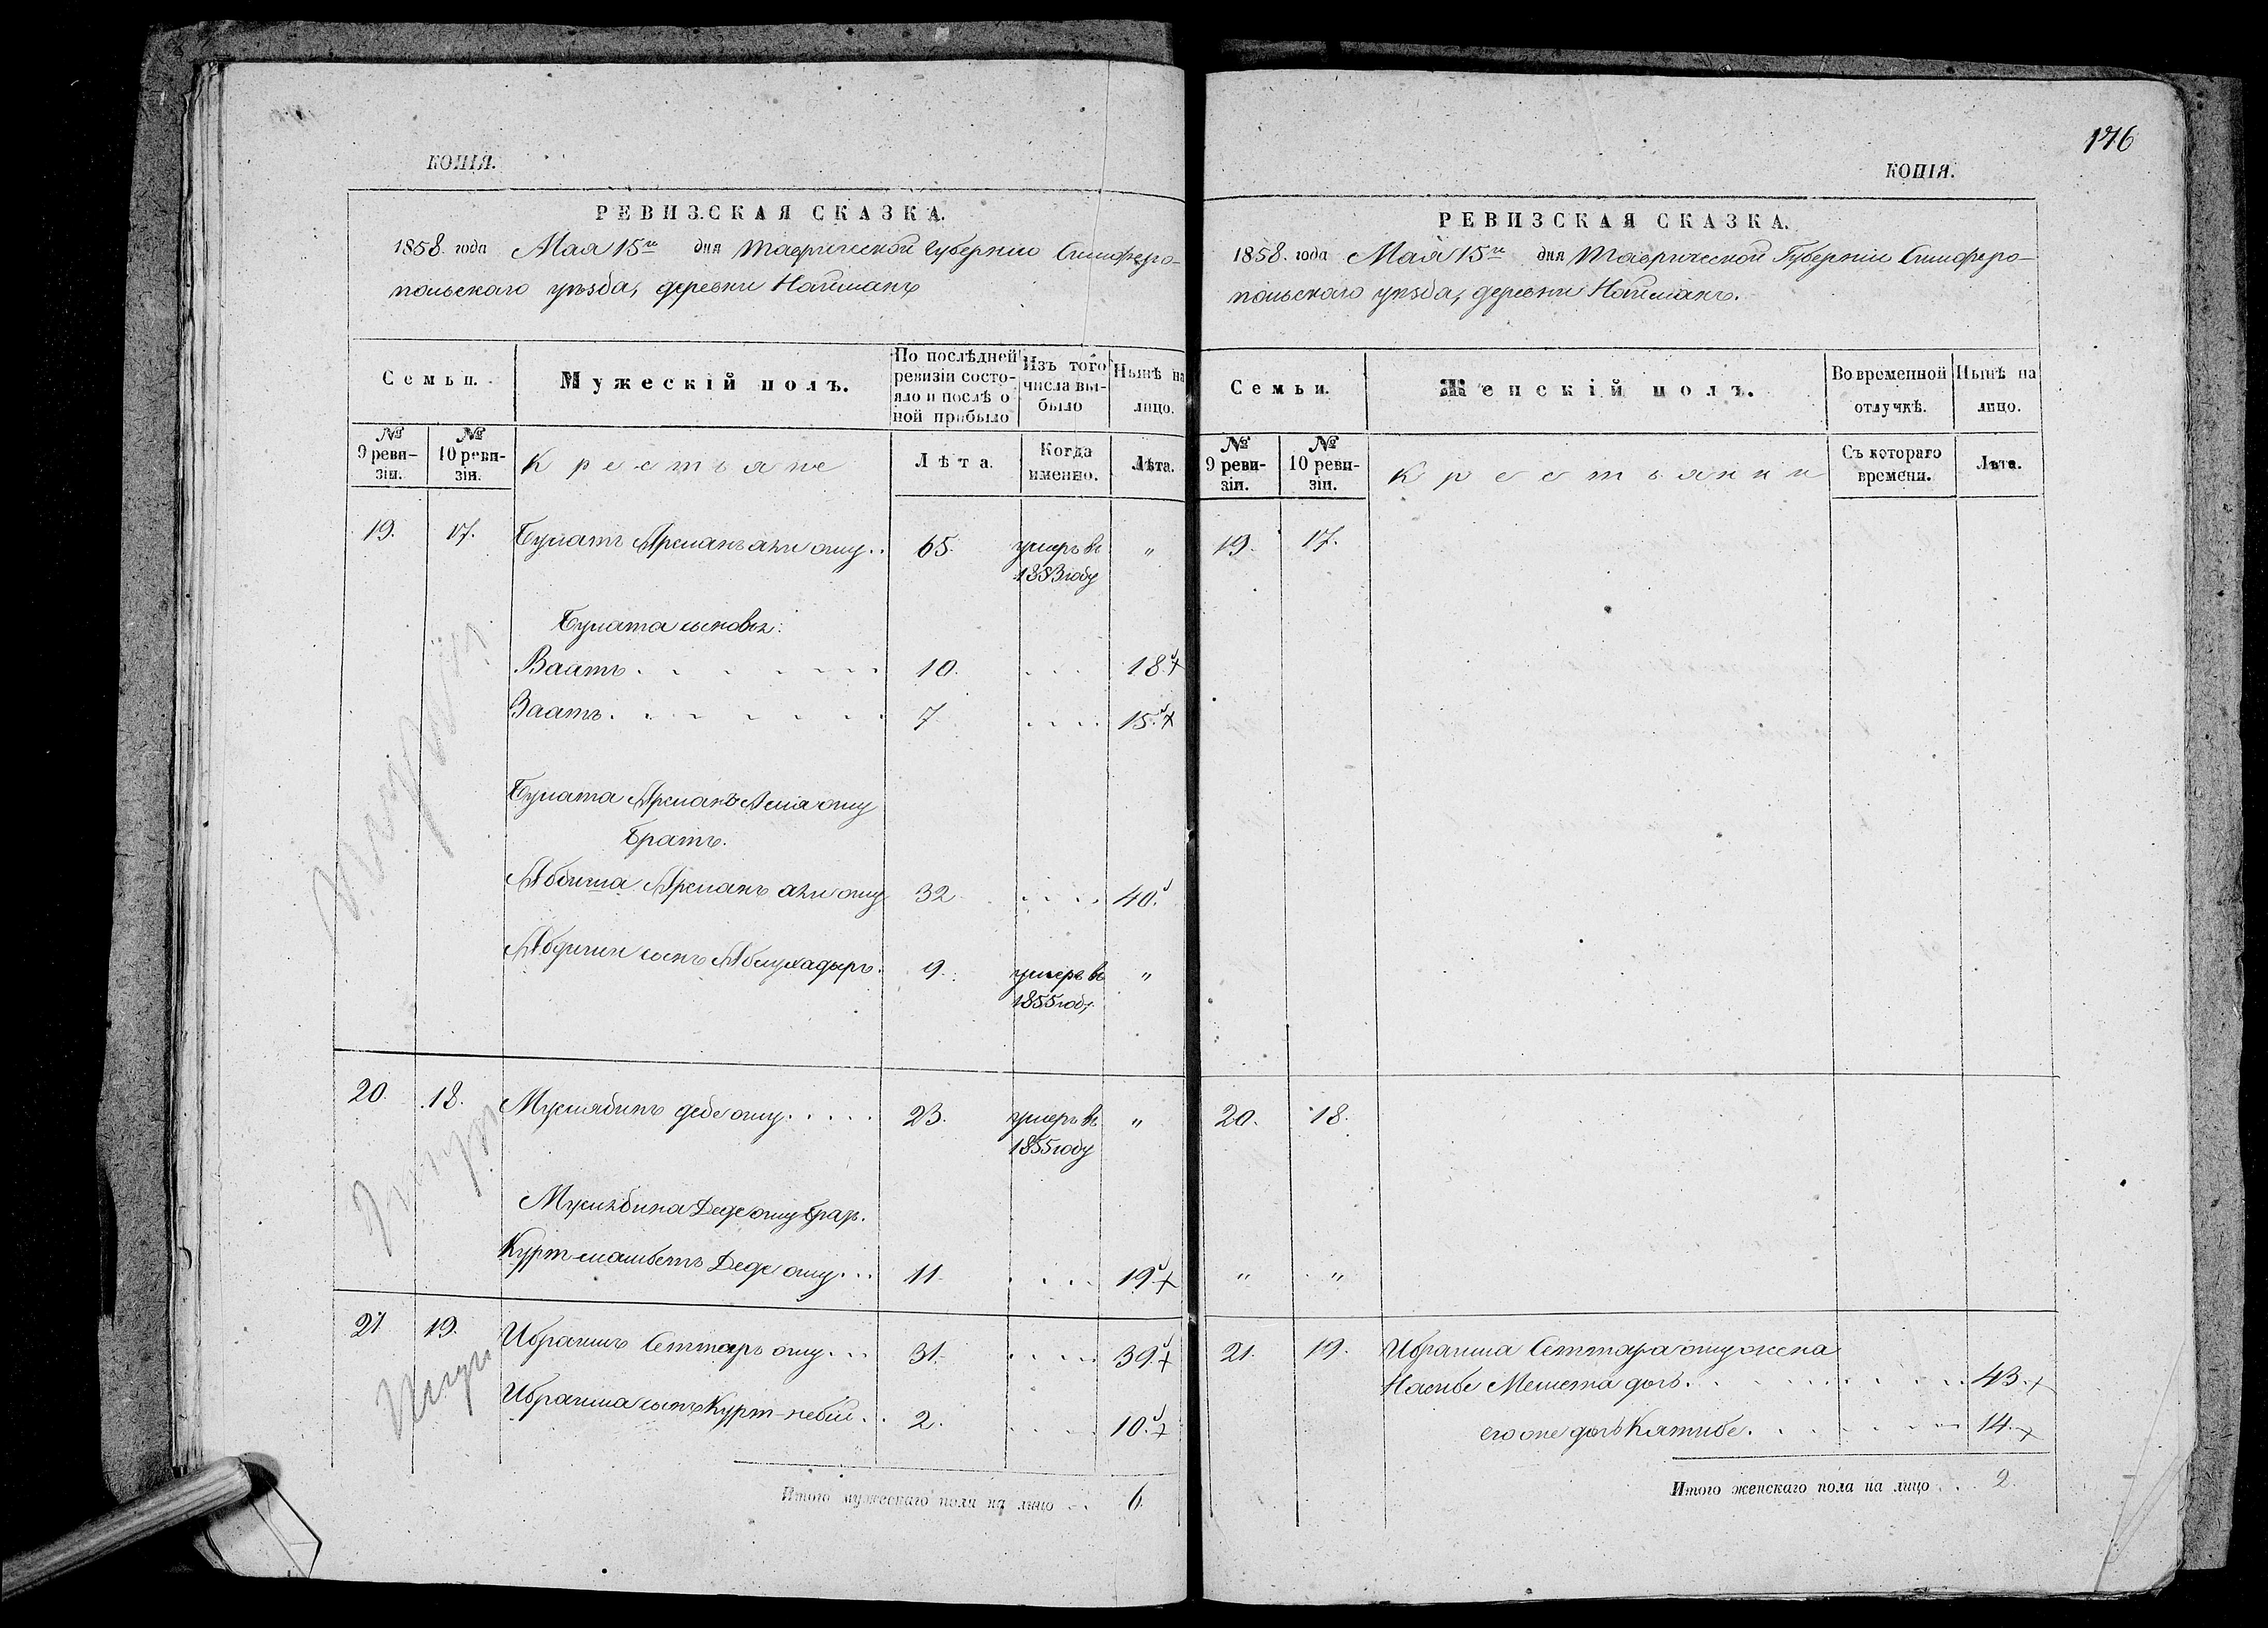 КОПІЯ.
РЕВИЗСКАЯ СКАЗКА.
1858. года Мая 15го дня Таврической Губерніи Симферо-
польскаго уѣзда, деревни Найманъ
Семьи.
Мужескій полъ.
По послѣдней ревизіи состо-
яло и послѣ о
ной прибыло
Изъ того
числа вы-
было
Нынѣ на
лицо.
№ 9 реви-
зіи.
№ 10 реви-
зіи.
Крестьяне
Лѣта.
Когда
именно.
Лѣта.
19. 17. Булатъ Арсланъ али оглу.. 65. умеръ въ "
1853 году
Булата сыновья:
Ваатъ. . . . . . . 10. . . . 18.
Заатъ. . . . . . . 7 . . . . 15.
Булата Арсланъ оглу
Братъ.
Арсланъ али оглу 32 . . . . 40.
сынъ 9. умеръ въ "
1855 году
20. 18. деде оглу. . . . . 23. умеръ въ "
1855 году
Деде оглу
Куртмамбетъ Деде оглу. . . 11. . . . . 19.
21. 19. Ибраимъ Сеттаръ оглу. . . 31. . . . . 39.
Ибраима сынъ Курт-небіи. . 2. . . . . 10.
Итого мужескаго пола на лицо . . 6.
176
КОПІЯ.
РЕВИЗСКАЯ СКАЗКА.
1858. года Мая 15го дня Таврической Губерніи Симферо-
польскаго уѣзда, деревни Найманъ.
Семьи.
Женскій полъ.
Во временной
отлучкѣ.
Нынѣ на
лицо.
№ 9 реви-
зіи.
№ 10 реви-
зіи.
Крестьянки
Съ котораго
времени.
Лѣта.
19. 17.
20. 18.
" "
21. 19. Ибраима Сеттара оглу жена
Насибе Мемета дочь. . . . . . . 43.
его дочь Катибе. . . . . . . 14.
Итого женскаго пола на лицо . . . 2.